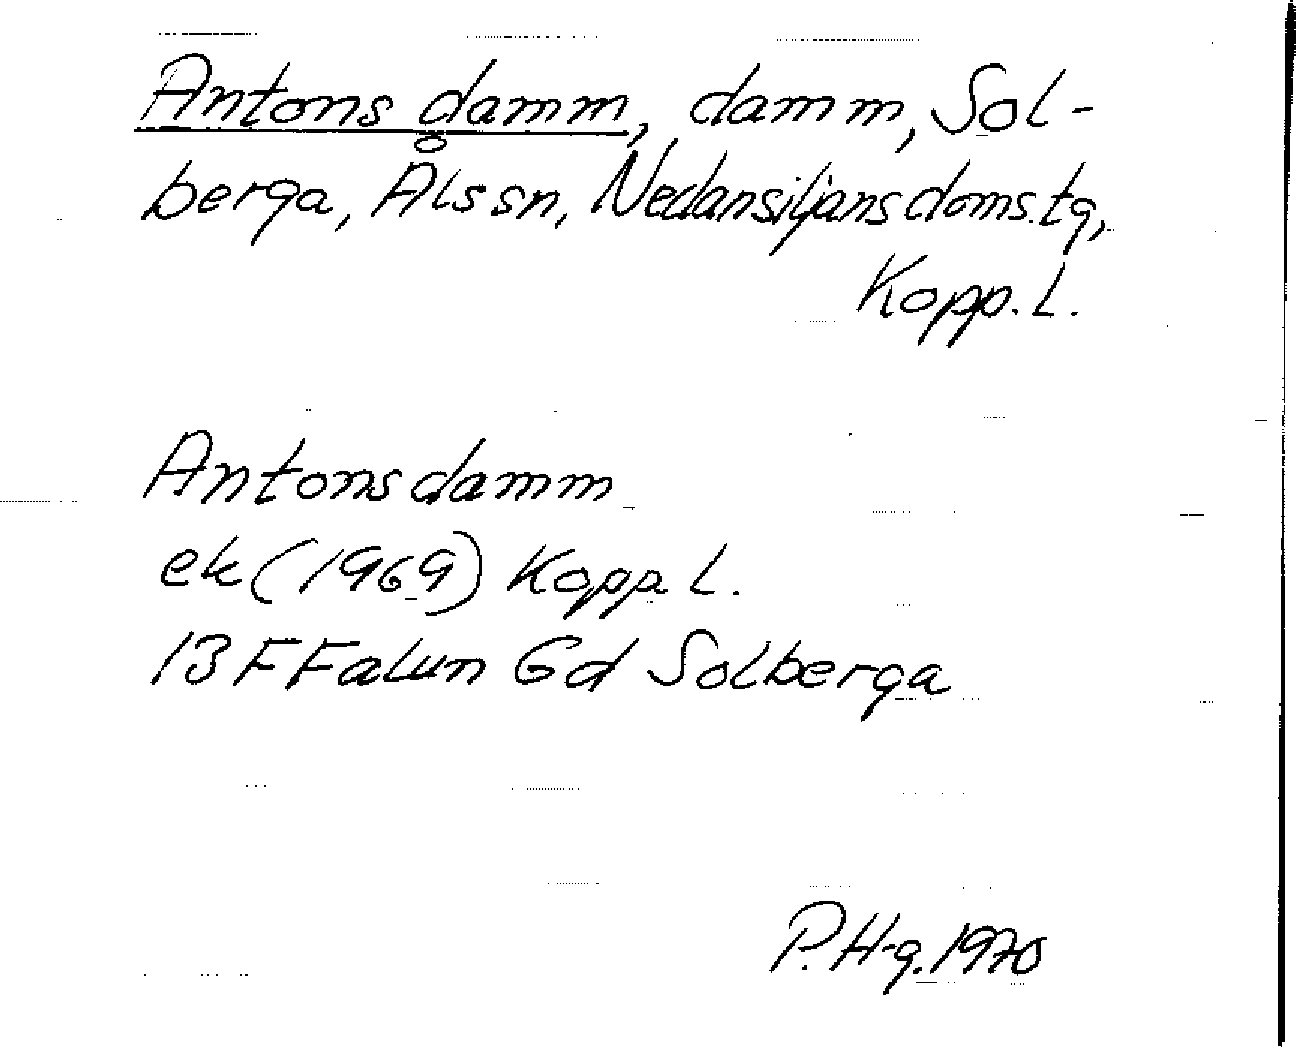 Antons damm, damm, Sol-
berga, Åls sn, Nedansiljans doms.tg,
Kopp. L.
Antonsdamm
ek (1969) Kopp. L.
13 F Falun Gd Solberga
P. H-g. 1970